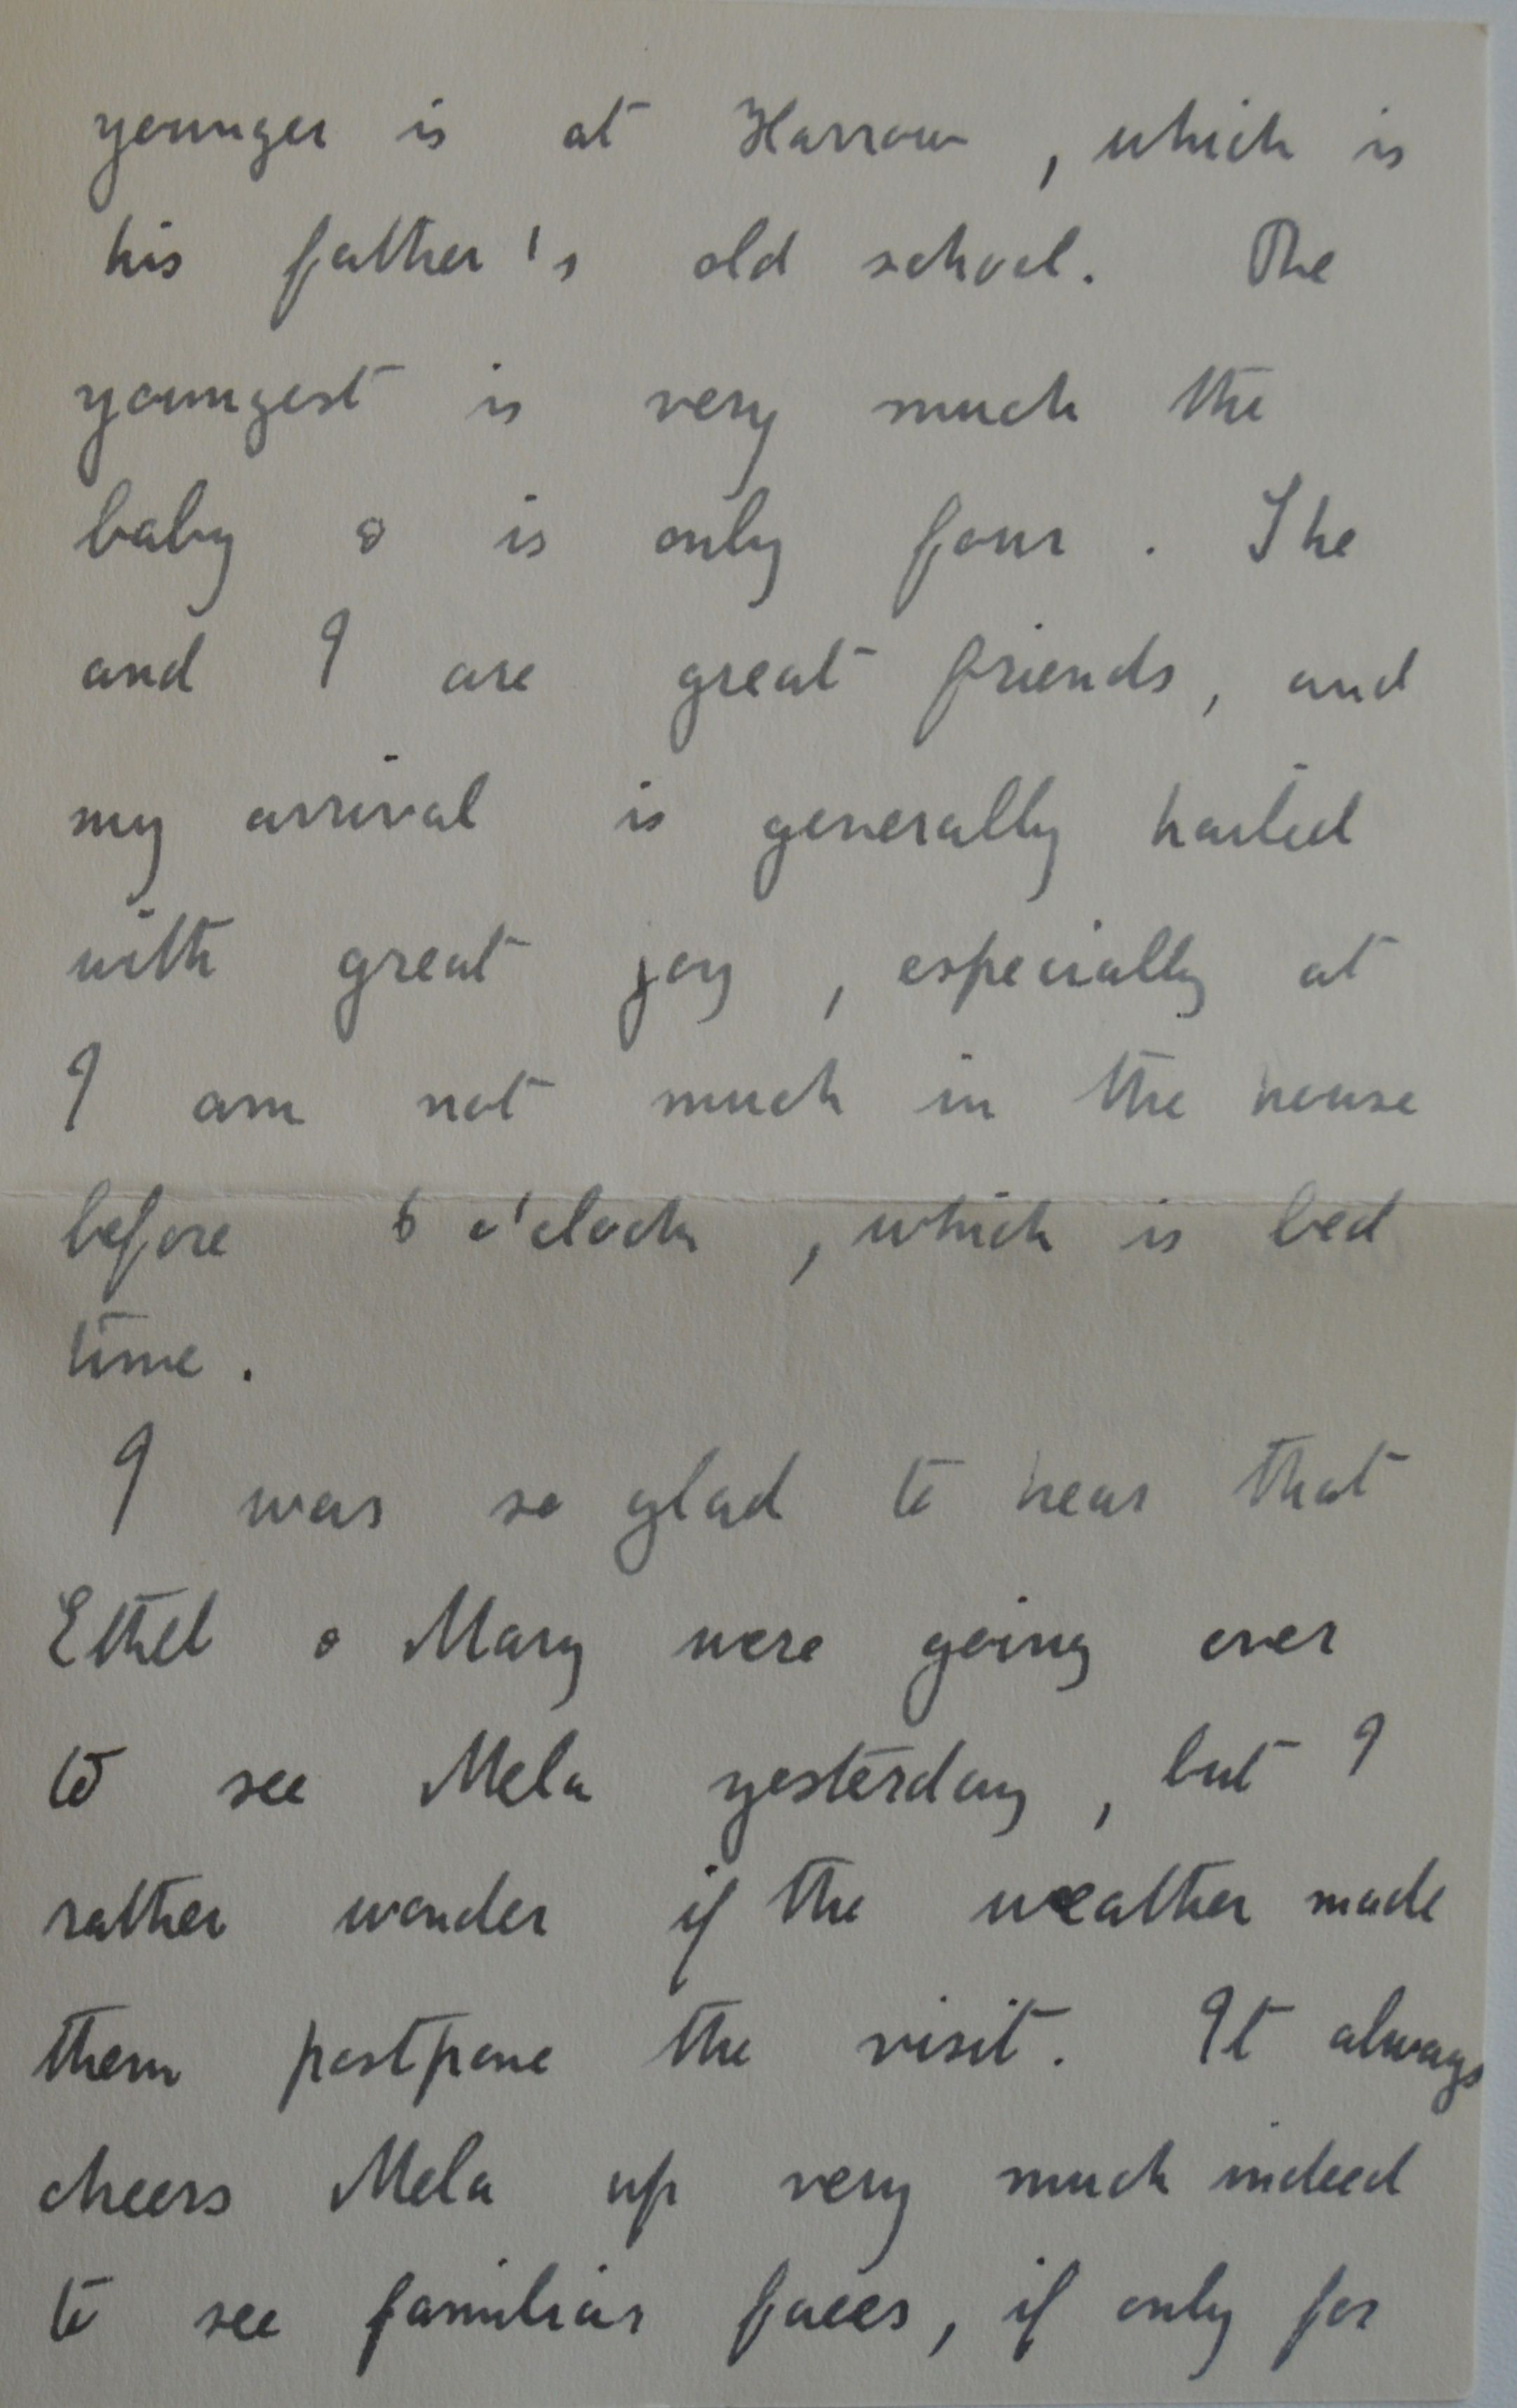 younger is at Harrow, which is
his father's old school. The
youngest is very much the
baby & is only four. She
and I are great friends, and
my arrival is generally hailed
with great joy, especially at
I am not much in the house
before 6 o'clock, which is bed
time.
I was so glad to hear that
Ethel & Mary were going over
to see Mela yesterday, but I
rather wonder if the weather made
them postpone the visit. It always
cheers Mela up very much indeed
to see familiar faces, if only for